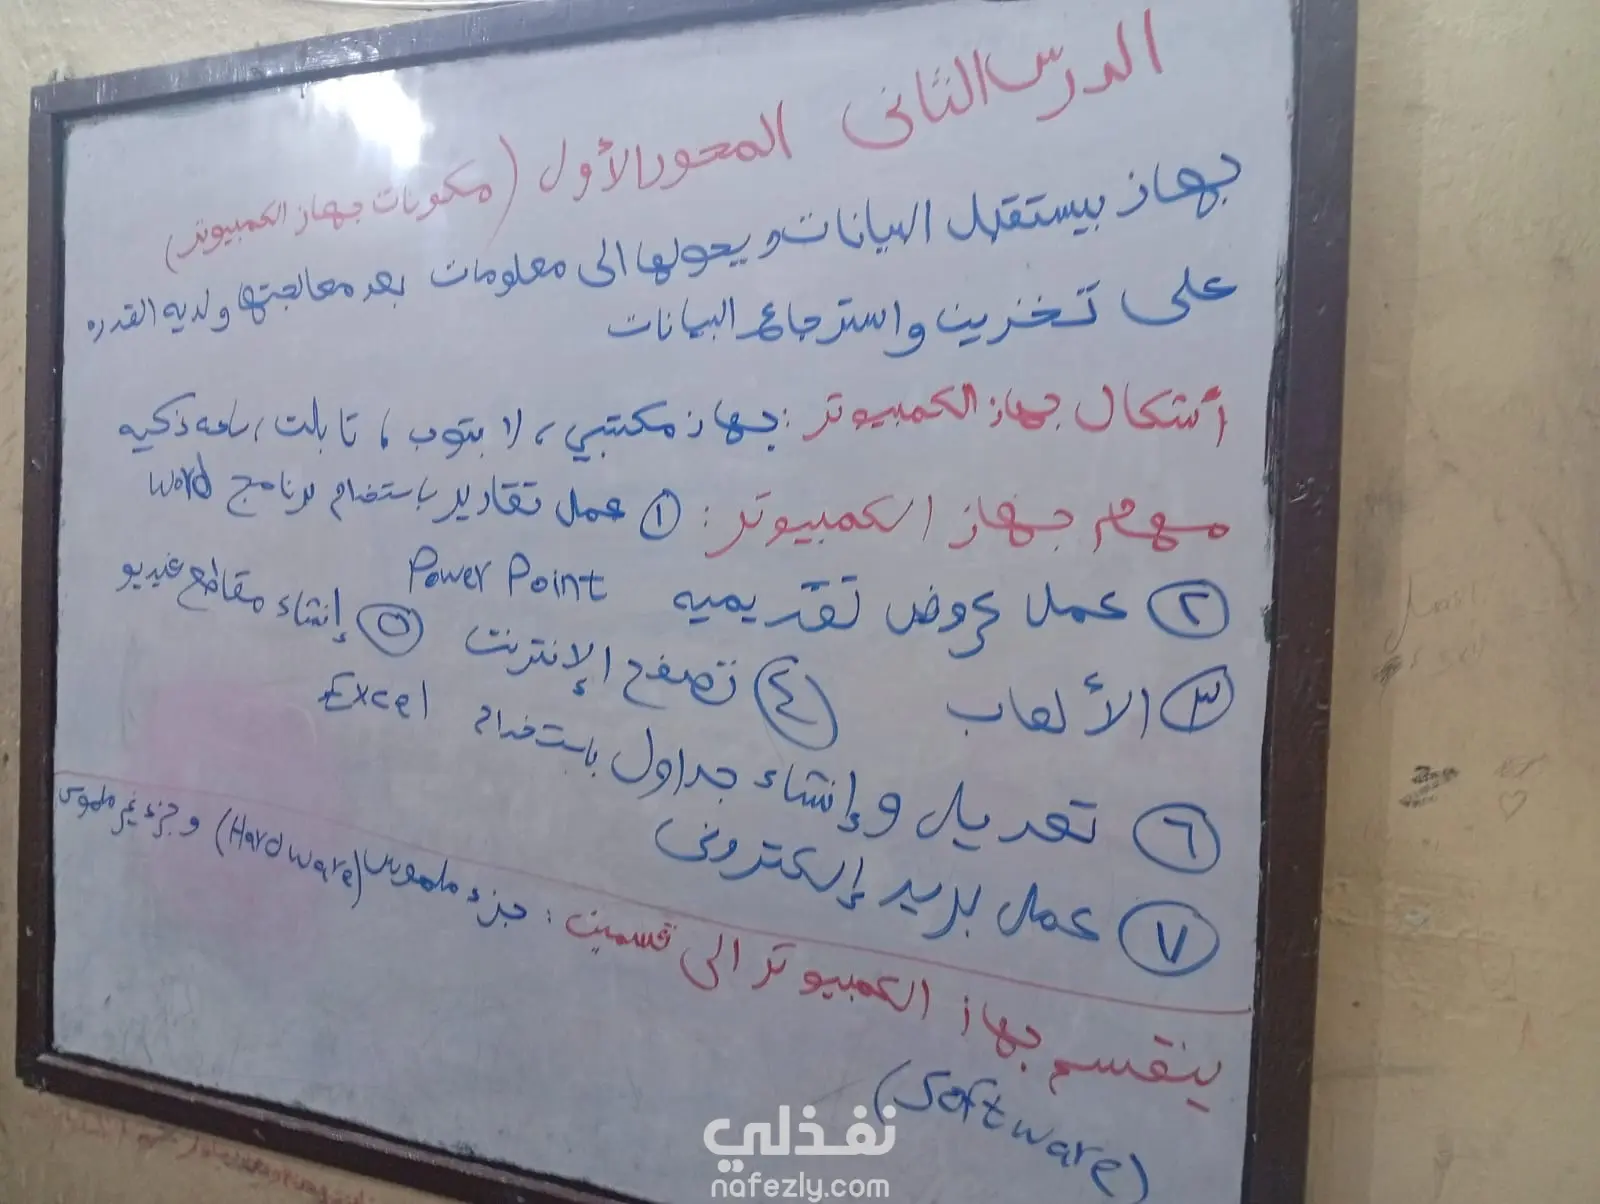 الدرس الثانى المحور الأول (مكونات جهاز الكمبيوتر)
جهاز بيستقبل البيانات ويحولها الى معلومات بعد معالجتها ولديه القدره
على تخزين واسترجاع البيانات
أشكال جهاز الكمبيوتر: جهاز مكتبي، لابتوب، تابلت، ساعه ذكيه
مهام جهاز الكمبيوتر: ① عمل تقارير باستخدام برنامج Word
② عمل عروض تقديميه Power Point
③ الألعاب ④ تصفح الإنترنت ⑤ إنشاء مقاطع فيديو
⑥ تعديل وإنشاء جداول باستخدام Excel
⑦ عمل بريد إلكترونى
ينقسم جهاز الكمبيوتر الى قسمين: جزء ملموس (Hardware) وجزء غير ملموس
(Software)
نفذلي
nafezly.com